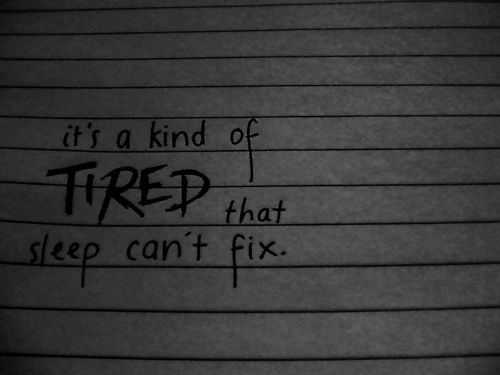 it's a kind of
TIRED that
sleep can't fix.